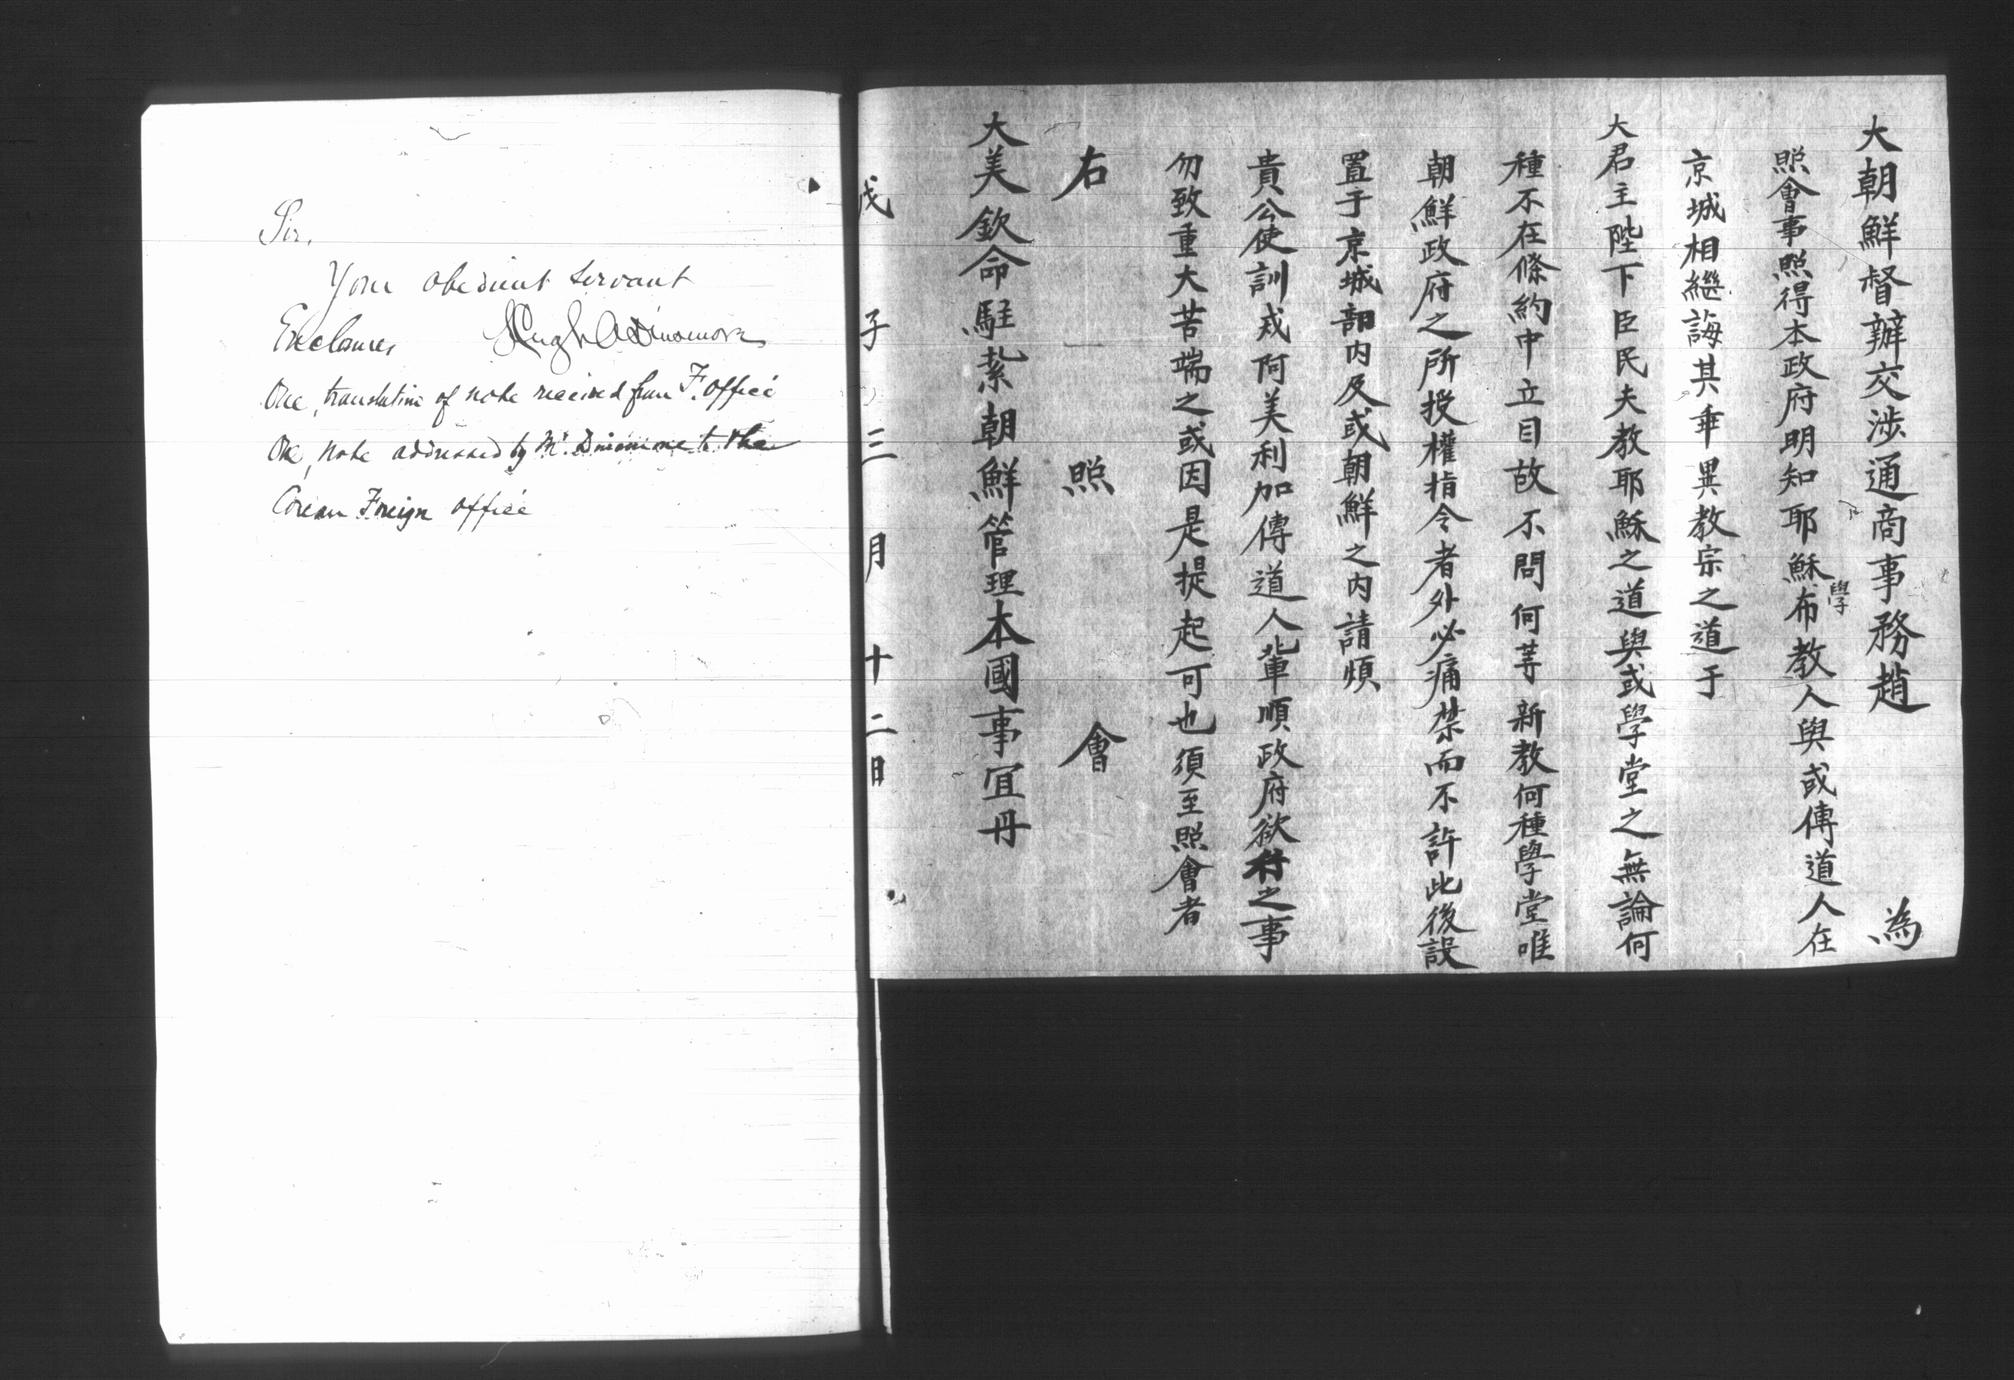 Sir,
Your obedient servant
Enclosures Hugh A Dinsmore
One, translation of note received from F. Office
One, note addressed by Mr. Dinsmore to the
Corean Foreign office
大朝鮮督辦交涉通商事務趙 為
照會事照得本政府明知耶穌布教人與或傳道人在
學
京城相繼誨其乖異教宗之道于
大君主陛下臣民夫教耶穌之道與或學堂之無論何
種不在條約中立目故不問何等新教何種學堂唯
朝鮮政府之所授權指令者外必痛禁而不許此後設
置于京城部內及或朝鮮之內請煩
貴公使訓戒阿美利加傳道人輩順政府欲行之事
勿致重大苦端之或因是提起可也須至照會者
右 照 會
大美欽命駐紮朝鮮管理本國事宜丹
戊子三月十二日